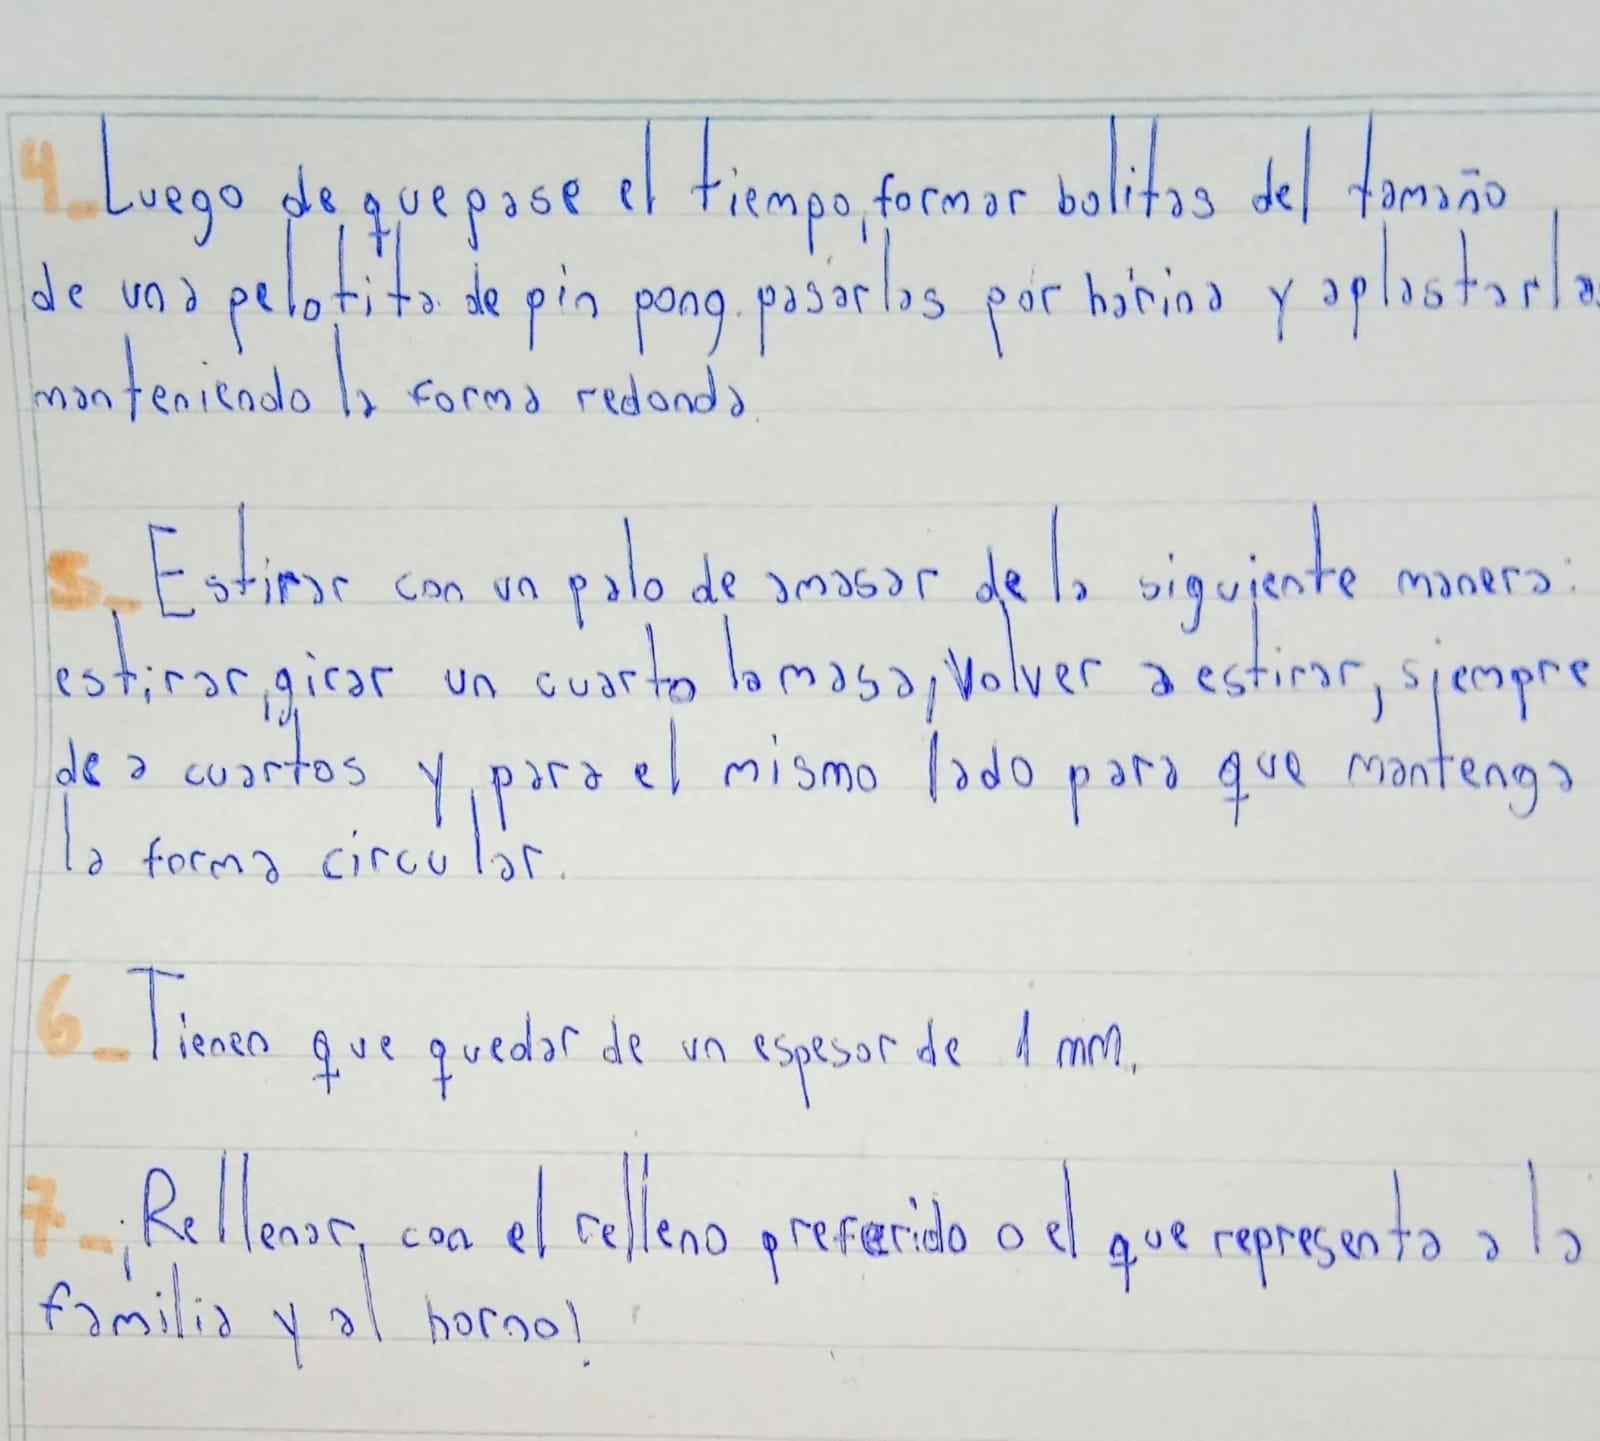 4_Luego de que pase el tiempo, formar bolitas del tamaño
de una pelotita de pin pong. pasarlas por harina y aplastarlas
manteniendo la forma redonda.
5_Estirar con un palo de amasar de la siguiente manera:
estirar, girar un cuarto la masa, volver a estirar, siempre
de a cuartos y para el mismo lado para que mantenga
la forma circular.
6_Tienen que quedar de un espesor de 1 mm.
7_¡Rellenar, con el relleno preferido o el que representa a la
familia y al horno!